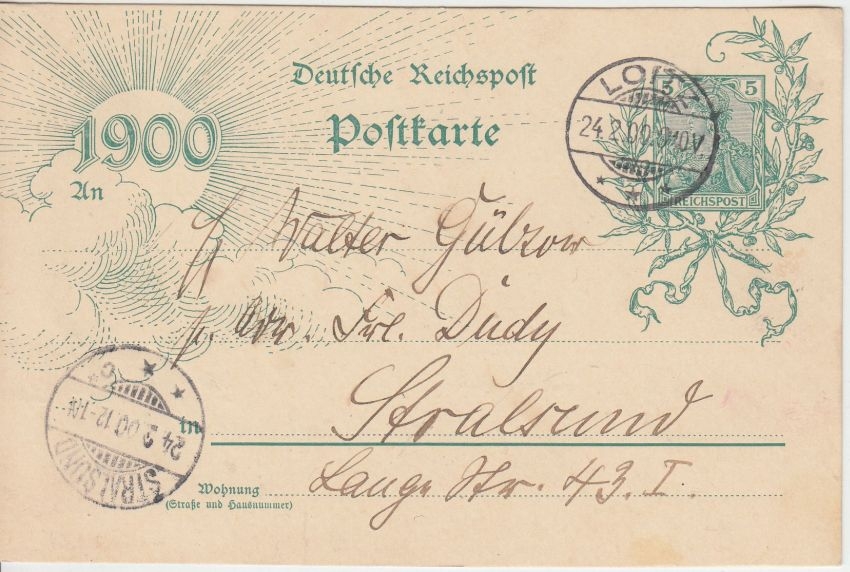 Deutsche Reichspost
Postkarte
1900
An
LOITZ
24.2.00.9-10V
5 5
REICHSPOST
Walter Gülzow
p. Adr. Frl. Düdy
in Stralsund
Wohnung Lange Str. 43. I.
(Straße und Hausnummer)
STRALSUND
24.2.00.12-1N
* c *